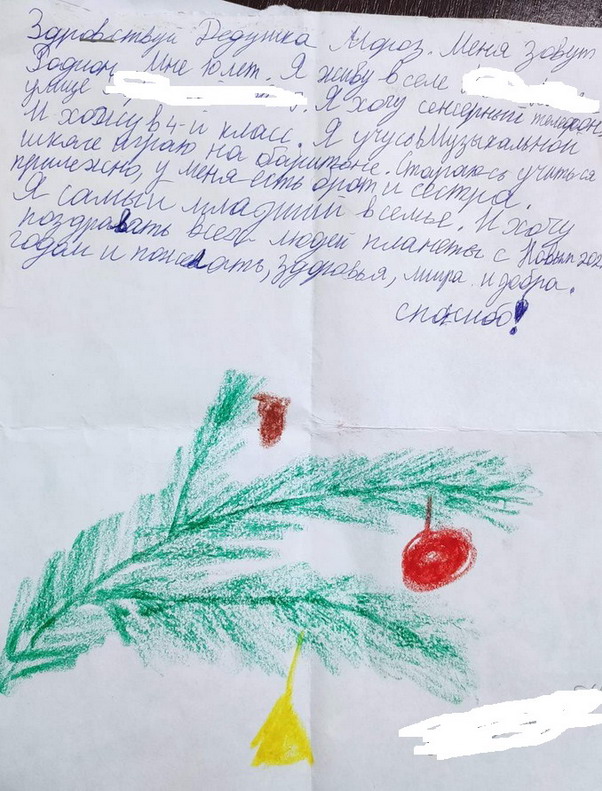 Здравствуй Дедушка Мороз. Меня зовут
Родион. Мне 10 лет. Я живу в селе
улице Я хочу сенсерный телефон,
И хожу в 4-й класс. Я учусь в Музыкальной
школе играю на баритоне. Стараюсь учиться
прилежно, у меня есть брат и сестра.
Я самый младший в семье. И хочу
поздравать всех людей планеты с Новым
годом и пожелать, здоровья, мира и добра.
спасибо!